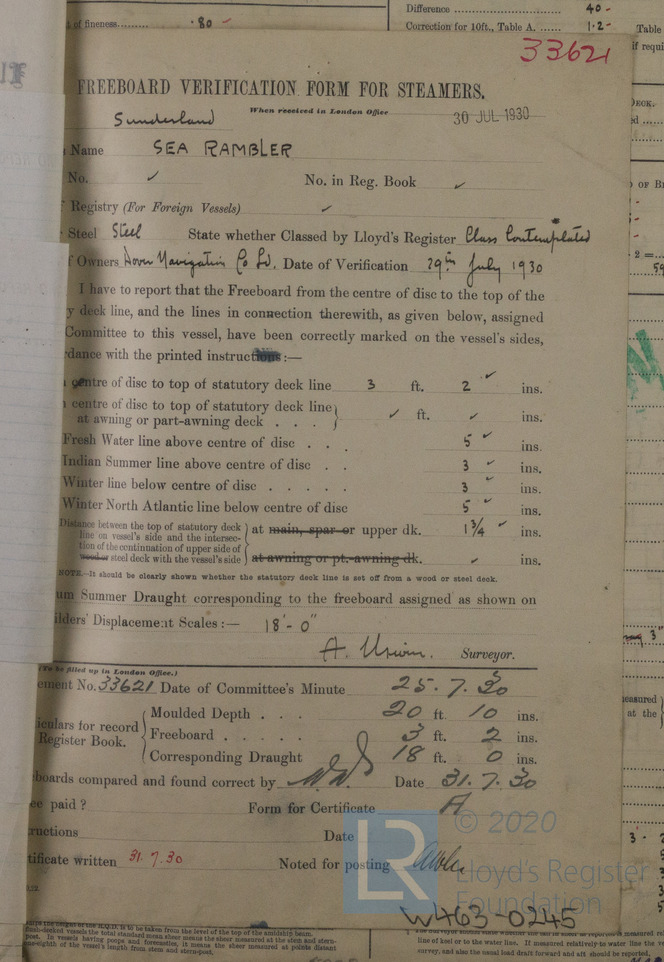 of fineness......... ·80
Difference ........ 40 -
Correction for 10ft., Table A. ..... 1·2 - Table
if requi
33621
FREEBOARD VERIFICATION FORM FOR STEAMERS.
When received in London Office
Sunderland 30 JUL 1930
Name SEA RAMBLER
No. ✓ No. in Reg. Book ✓
Registry (For Foreign Vessels) ✓
Steel Steel State whether Classed by Lloyd's Register Class Contemplated
Owners Dover Navigation Co Ld. Date of Verification 29th July 1930
I have to report that the Freeboard from the centre of disc to the top of the
y deck line, and the lines in connection therewith, as given below, assigned
Committee to this vessel, have been correctly marked on the vessel's sides,
dance with the printed instructions:—
centre of disc to top of statutory deck line 3 ft. 2 ✓ ins.
centre of disc to top of statutory deck line
at awning or part-awning deck . . . } ✓ ft. ✓ ins.
Fresh Water line above centre of disc . . . 5 ✓ ins.
Indian Summer line above centre of disc . . 3 ✓ ins.
Winter line below centre of disc . . . . . 3 ✓ ins.
Winter North Atlantic line below centre of disc 5 ✓ ins.
Distance between the top of statutory deck
line on vessel's side and the intersec-
tion of the continuation of upper side of
wood or steel deck with the vessel's side
at main, spar or upper dk. 1¾ ✓ ins.
at awning or pt.-awning dk. ✓ ins.
NOTE.—It should be clearly shown whether the statutory deck line is set off from a wood or steel deck.
um Summer Draught corresponding to the freeboard assigned as shown on
ilders' Displacement Scales:— 18'-0"
A. Urwin. Surveyor.
(To be filled up in London Office.)
ement No. 33621 Date of Committee's Minute 25.7.30
iculars for record
Register Book.
Moulded Depth . . . 20 ft. 10 ins.
Freeboard . . . . . 3 ft. 2 ins.
Corresponding Draught 18 ft. 0 ins.
boards compared and found correct by Date 31.7.30
ee paid ? Form for Certificate A
ructions Date
tificate written 31.7.30 Noted for posting
© 2020
LR
Lloyd's Register
Foundation
W463-0245